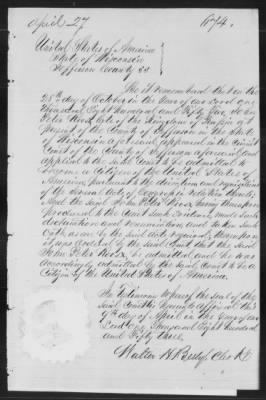 April 27 1874.
United States of America
State of Wisconsin
Jefferson County SS
Be it remembered that on the
25th day of October in the Year of our Lord one
thousand Eight hundred and Fifty John
Peter of the Kingdom of Prussia at
present of the County of Jefferson in the State
of Wisconsin aforesaid appeared in the Circuit
Court of the County of Jefferson aforesaid and
applied to the said Court to be admitted to
become a Citizen of the United States of
America pursuant to the directions and requisitions
of the several Acts of Congress in relation thereto
And the said John Peter having thereupon
produced to the Court such Evidence, made such
declaration and renunciation and taken such
Oath as are by the said Acts required, thereupon
it was ordered by the said Court that the said
John Peter be admitted and he was
accordingly admitted by the said Court to be a
Citizen of the United States of America.
In Testimony whereof the seal of the
said Court is hereunto affixed this
9th day of April in the Year of our
Lord One Thousand Eight hundred
and Fifty three.
Walter H Clerk